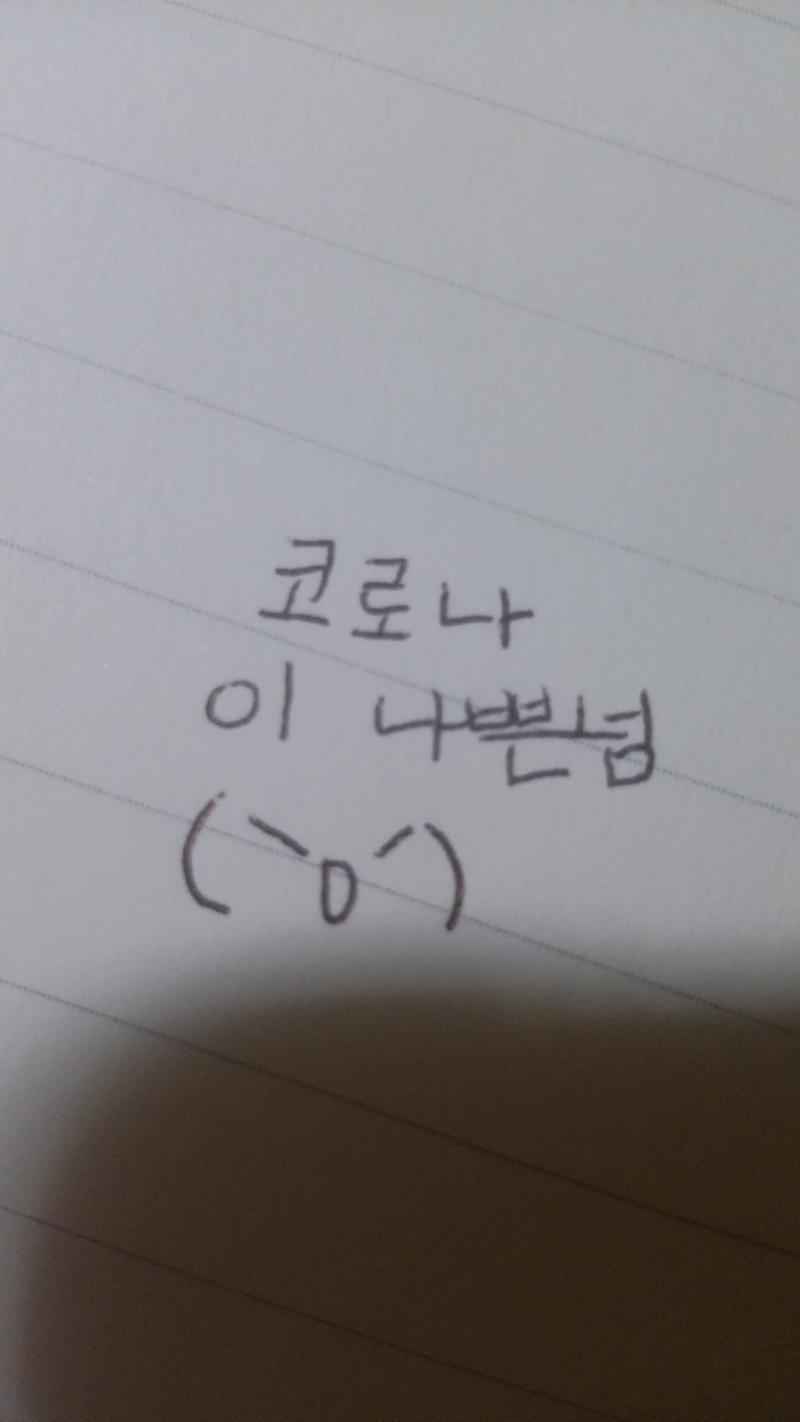 코로나
이 나쁜넘
(`0´)